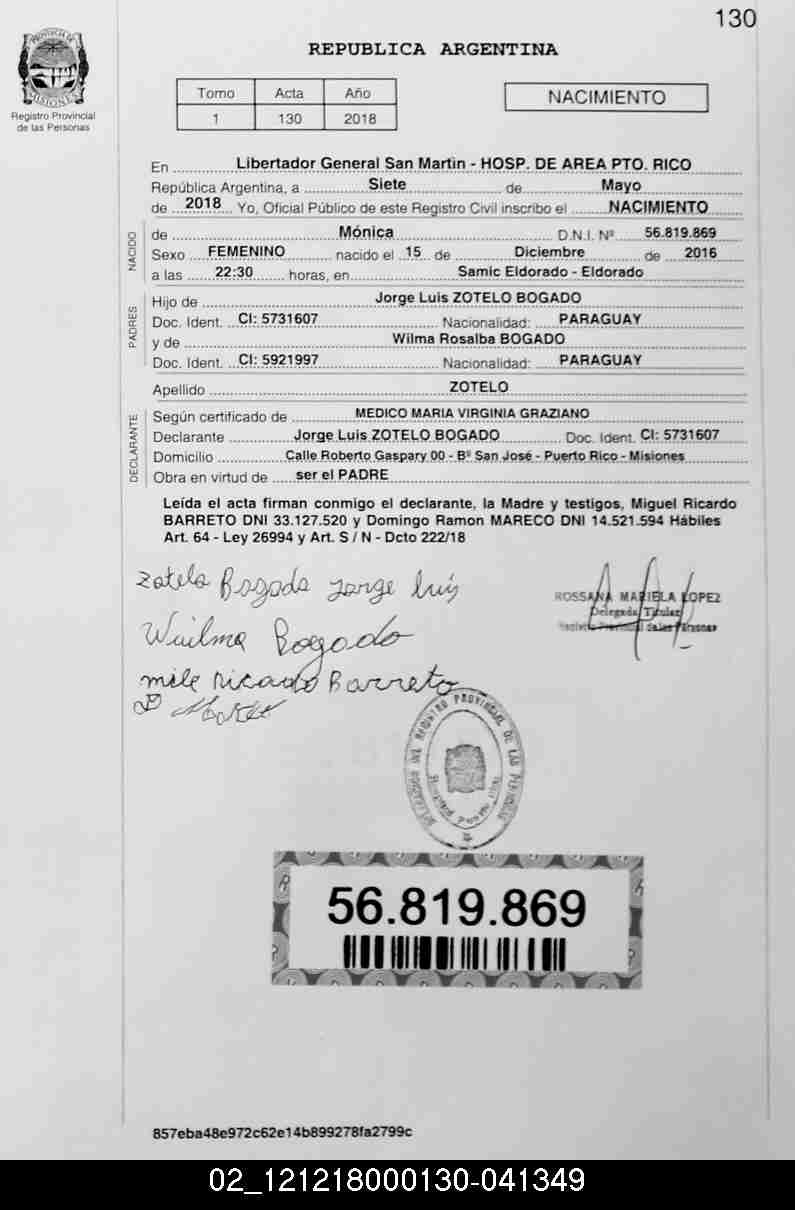 130
PROVINCIA DE
MISIONES
Registro Provincial
de las Personas
REPUBLICA ARGENTINA
Tomo Acta Año
1 130 2018
NACIMIENTO
En Libertador General San Martin - HOSP. DE AREA PTO. RICO
República Argentina, a Siete de Mayo
de 2018 Yo, Oficial Público de este Registro Civil inscribo el NACIMIENTO
NACIDO
de Mónica D.N.I. Nº 56.819.869
Sexo FEMENINO nacido el 15 de Diciembre de 2016
a las 22:30 horas, en Samic Eldorado - Eldorado
PADRES
Hijo de Jorge Luis ZOTELO BOGADO
Doc. Ident. CI: 5731607 Nacionalidad: PARAGUAY
y de Wilma Rosalba BOGADO
Doc. Ident. CI: 5921997 Nacionalidad: PARAGUAY
Apellido ZOTELO
DECLARANTE
Según certificado de MEDICO MARIA VIRGINIA GRAZIANO
Declarante Jorge Luis ZOTELO BOGADO Doc. Ident. CI: 5731607
Domicilio Calle Roberto Gaspary 00 - Bº San José - Puerto Rico - Misiones
Obra en virtud de ser el PADRE
Leída el acta firman conmigo el declarante, la Madre y testigos, Miguel Ricardo
BARRETO DNI 33.127.520 y Domingo Ramon MARECO DNI 14.521.594 Hábiles
Art. 64 - Ley 26994 y Art. S / N - Dcto 222/18
Zotelo Bogado Jorge luis
ROSSANA MARIELA LOPEZ
Delegada Titular
Registro Provincial de las Personas
Wuilma Bogado
Ricardo Barreto
REGISTRO PROVINCIAL DE LAS PERSONAS
56.819.869
857eba48e972c62e14b899278fa2799c
02_121218000130-041349